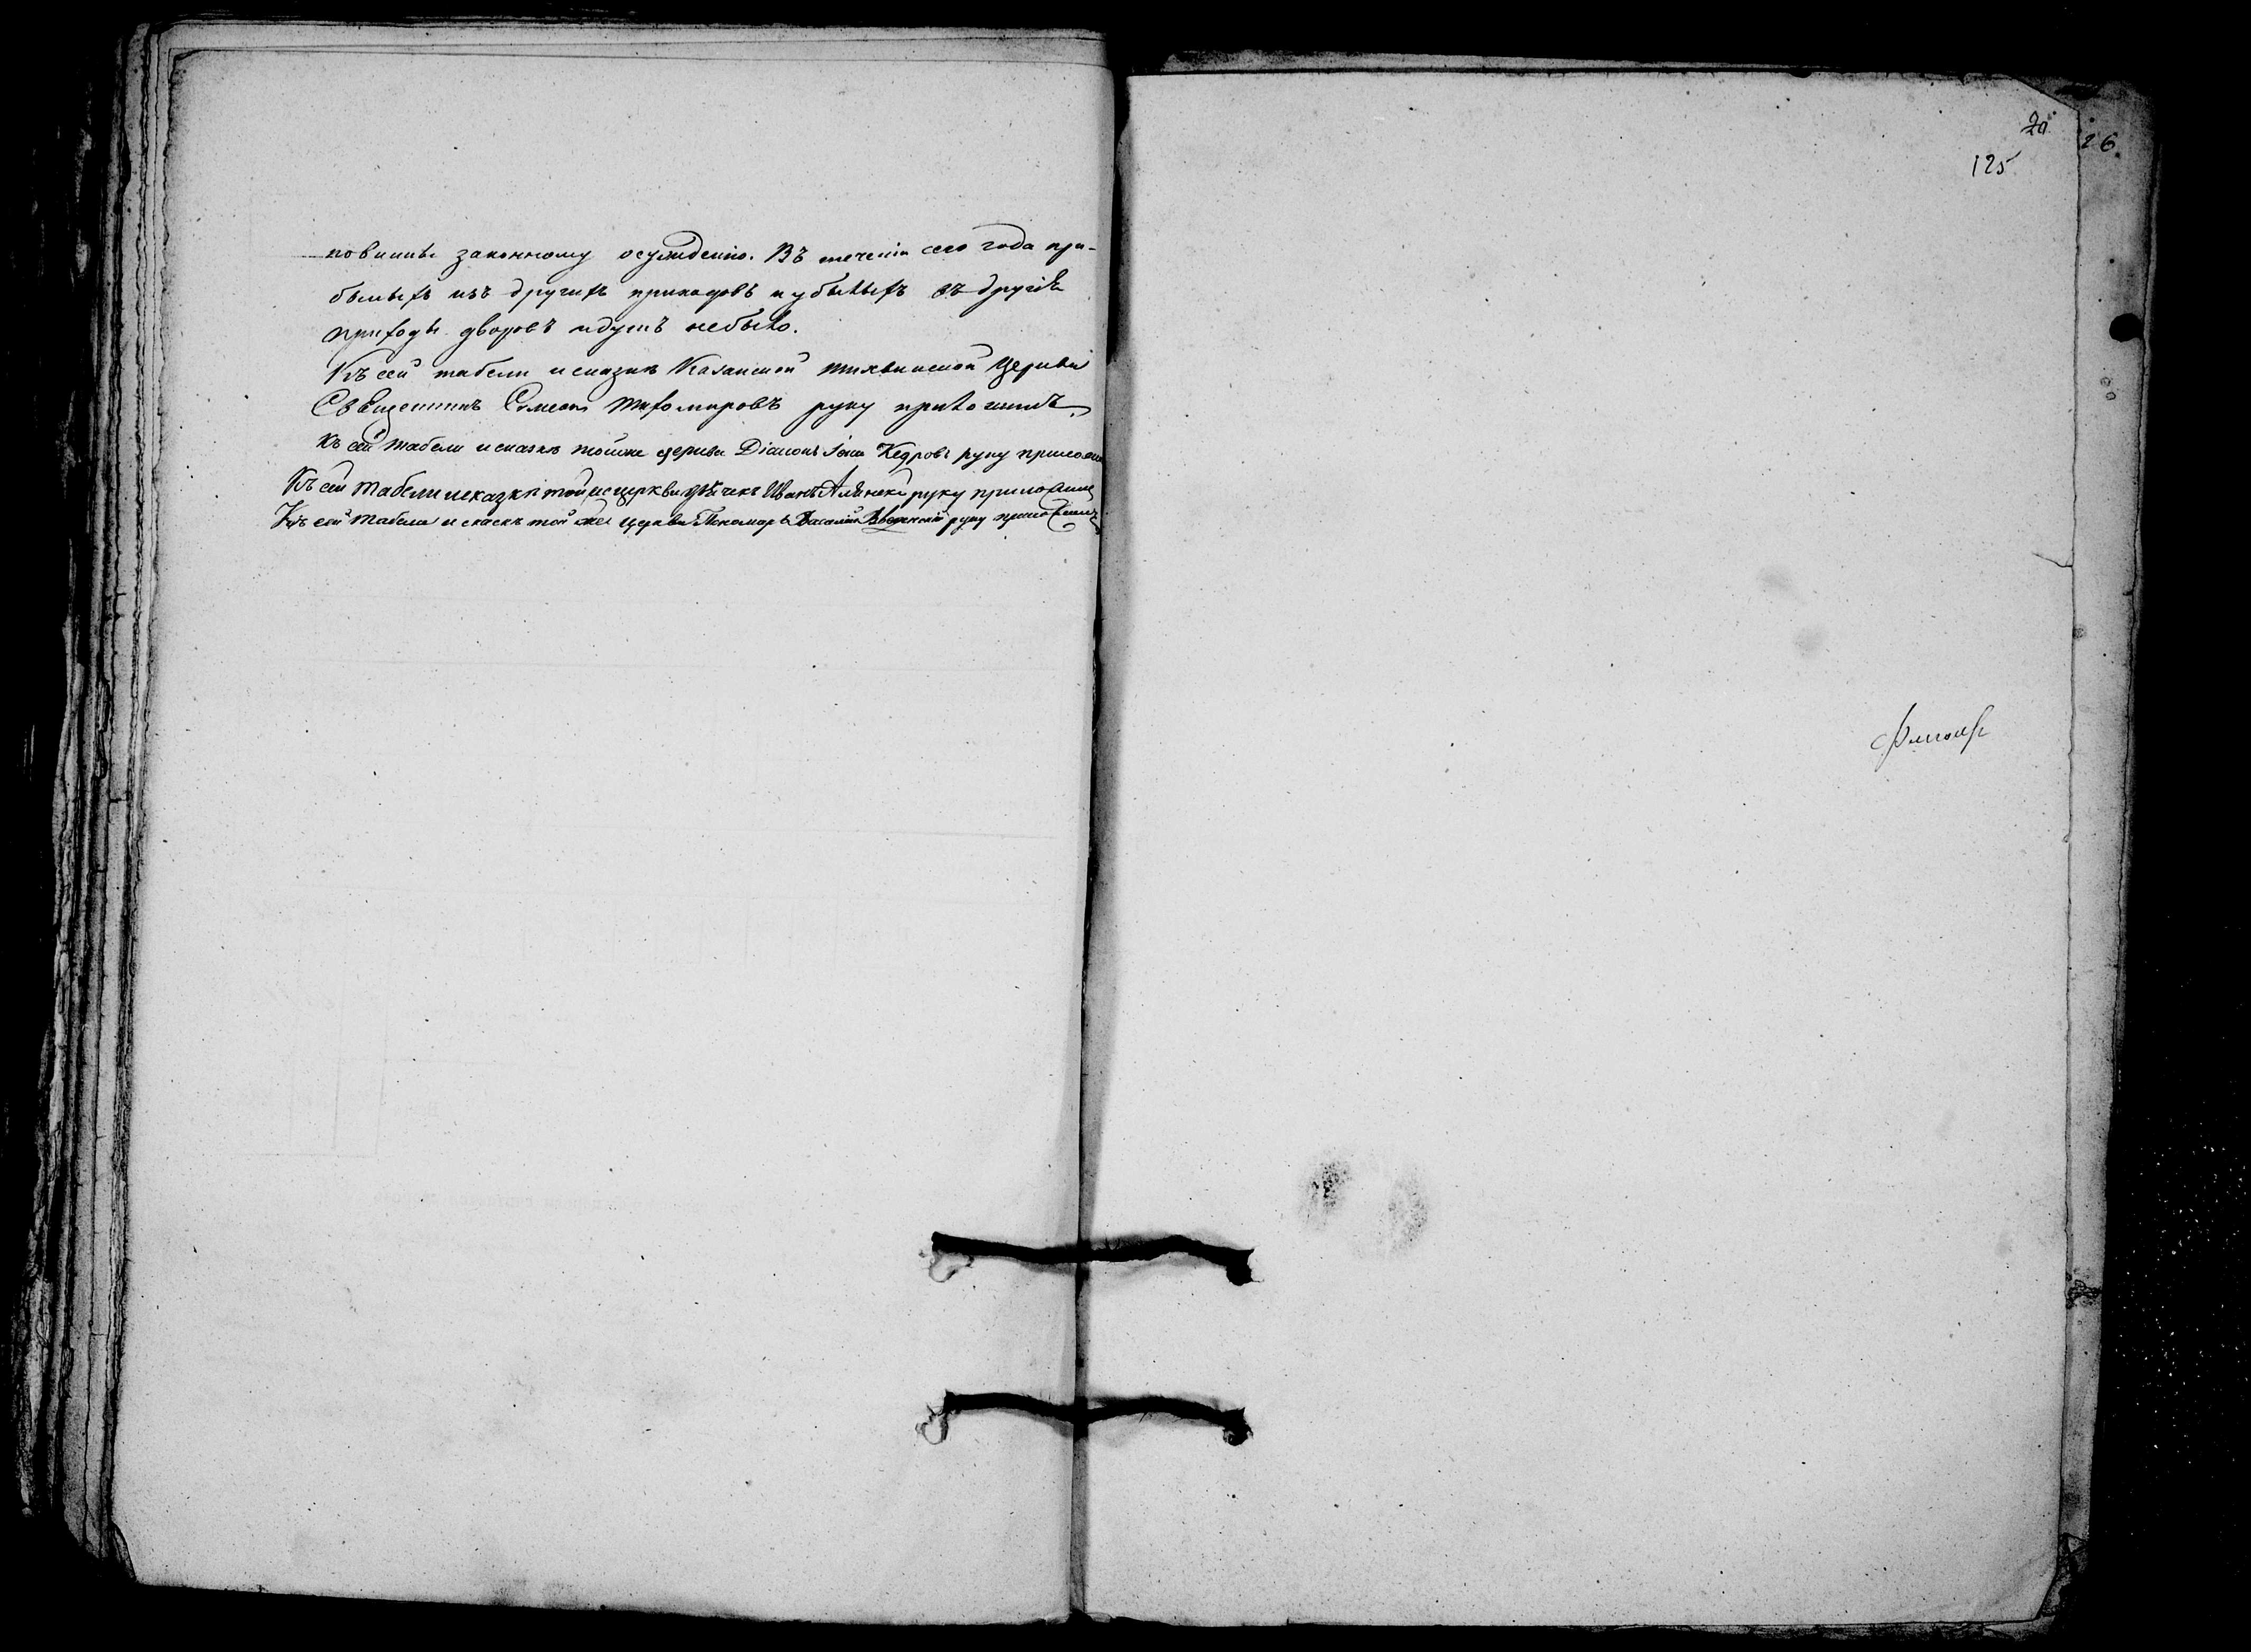 повинны законному осужденію. Въ теченіи сего года при-
былыхъ изъ другихъ приходовъ и убылыхъ въ другіе
приходы дворовъ и душъ небыло.
Къ сей табели и сказкѣ Казанской Тихвинской Церкви
Священникъ Симеонъ Тихомировъ руку приложилъ
Къ сей табели и сказкѣ тойже церкви Діаконъ Іона Кедровъ руку приложилъ
Къ сей табели и сказкѣ той же церкви дьячекъ Иванъ руку приложилъ
Къ сей табели и скаскѣ той же церкви Пономарь Василій Введенскій руку приложилъ
20
26
125